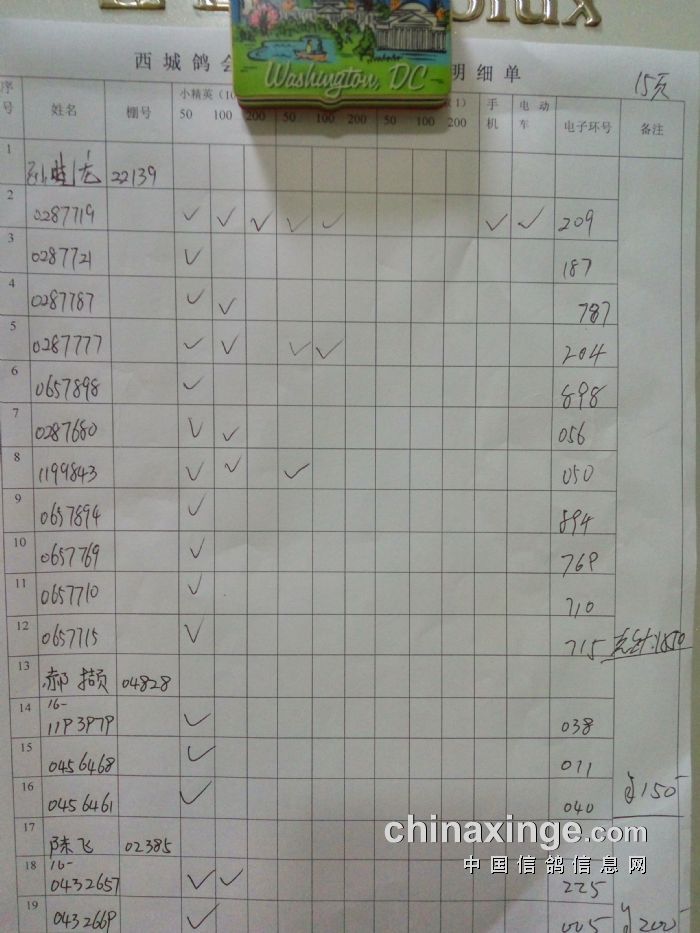 西城鸽会 明细单 15页
序号 姓名 棚号 小精英(10 50 100 200 50 100 200 50 100 取1) 200 手机 电动车 电子环号 备注
1 22139
2 0287719 ✓ ✓ ✓ ✓ ✓ ✓ ✓ 209
3 0287721 ✓ 187
4 0287787 ✓ ✓ 787
5 0287777 ✓ ✓ ✓ ✓ 204
6 0657898 ✓ 898
7 0287680 ✓ ✓ 056
8 1199843 ✓ ✓ ✓ 050
9 0657894 ✓ 894
10 0657769 ✓ 769
11 0657710 ✓ 710
12 0657715 ✓ 715 1850
13 郝撷 04828
14 16-1193979 ✓ 038
15 0456468 ✓ 011
16 0456461 ✓ 040 150
17 陈飞 02385
18 16-0432657 ✓ ✓ 225
19 0432669 ✓ 005 200
Washington, DC
chinaxinge.com
中国信鸽信息网